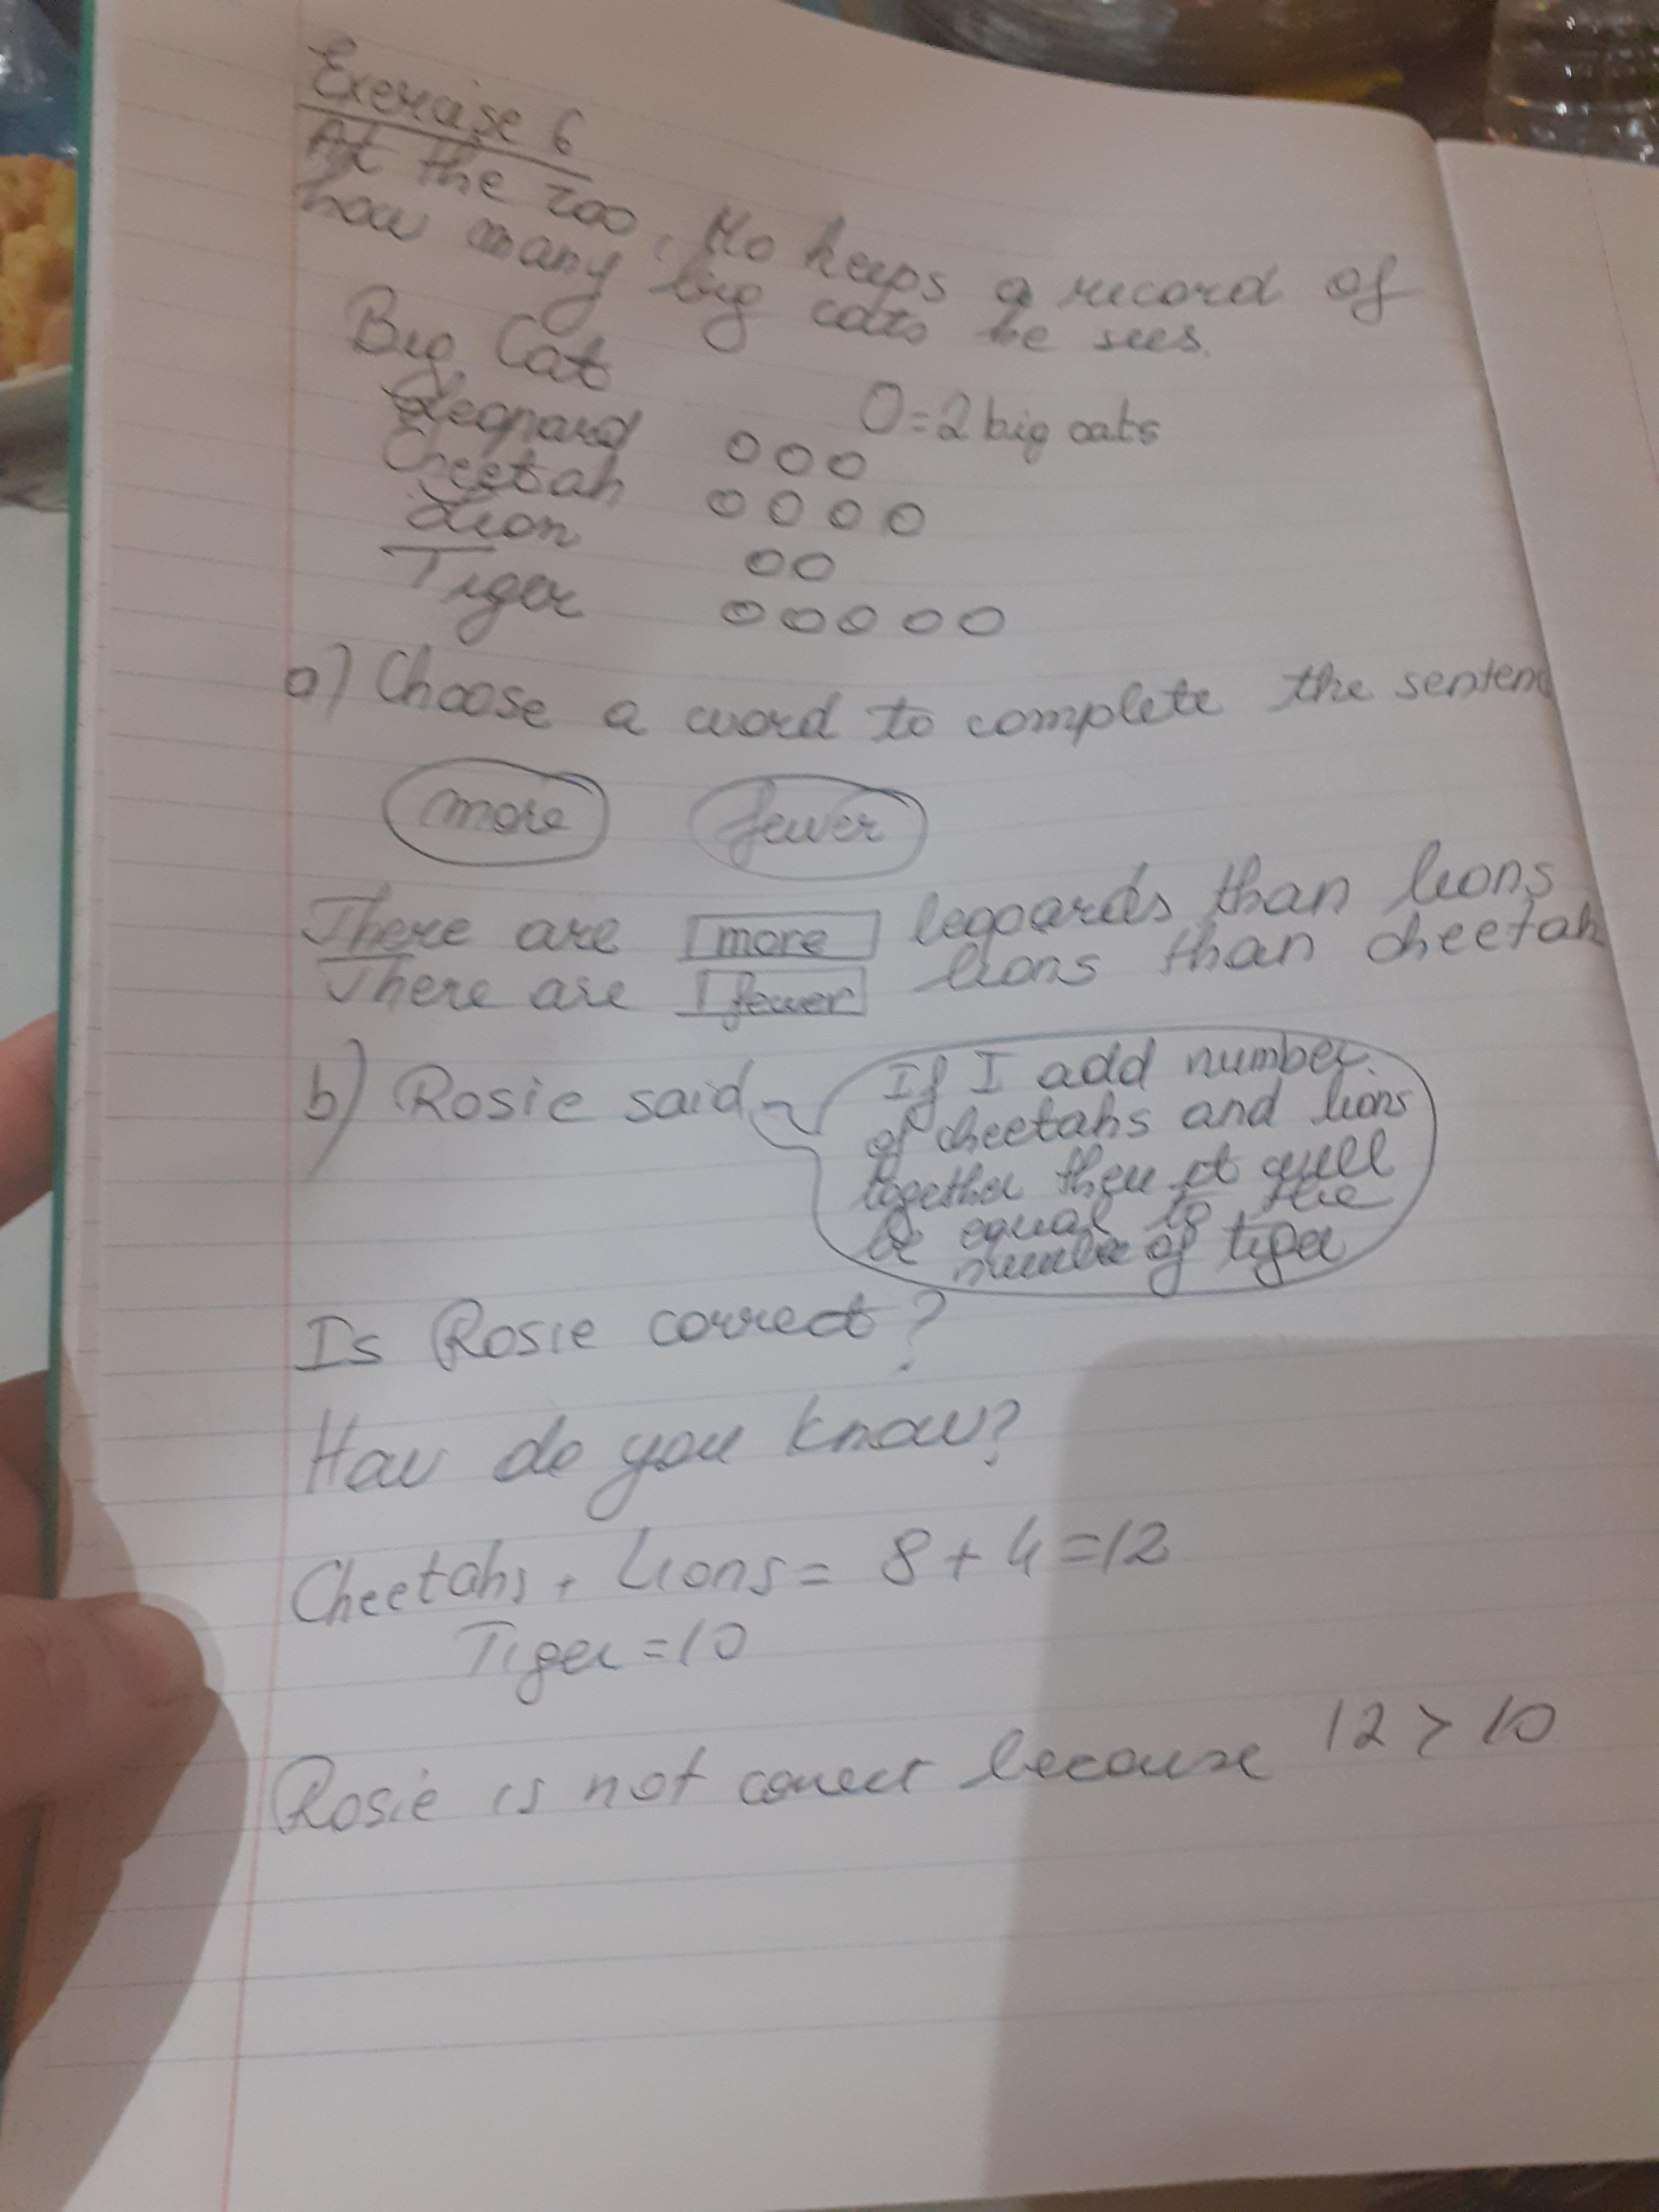 Exercise 6
At the zoo, Mo keeps a record of
how many big cats he sees.
Big Cat
O=2 big cats
Leopard O O O
Cheetah O O O O
Lion O O
Tiger O O O O O
a) Choose a word to complete the sentenc
more fewer
There are more leopards than lions
There are fewer lions than cheetah
b) Rosie said
If I add number
of cheetahs and lions
together then it will
be equal to the
number of tiger
Is Rosie correct?
How do you know?
Cheetahs + Lions = 8 + 4 = 12
Tiger = 10
Rosie is not correct because 12 > 10